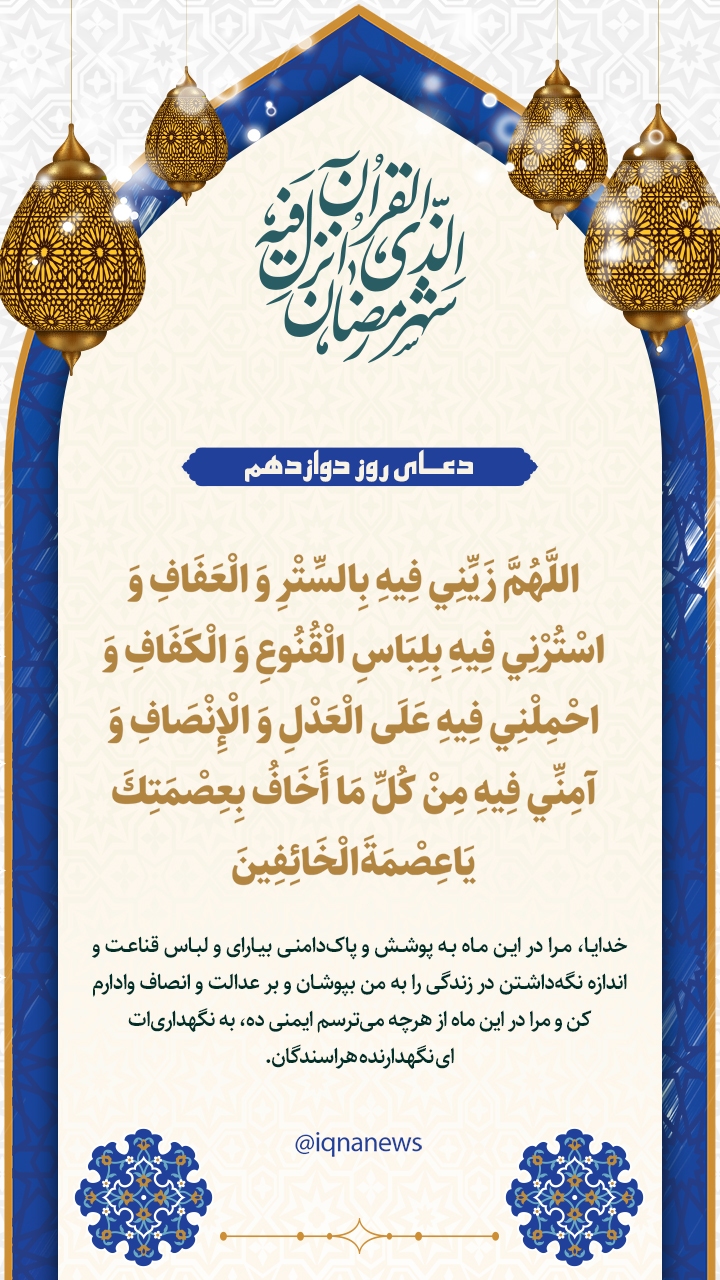 شهر رمضان
الذی انزل فیه
القرآن
دعــای روز دوازدهم
اللَّهُمَّ زَيِّنِي فِيهِ بِالسِّتْرِ وَ الْعَفَافِ وَ
اسْتُرْنِي فِيهِ بِلِبَاسِ الْقُنُوعِ وَ الْكَفَافِ وَ
احْمِلْنِي فِيهِ عَلَى الْعَدْلِ وَ الْإِنْصَافِ وَ
آمِنِّي فِيهِ مِنْ كُلِّ مَا أَخَافُ بِعِصْمَتِكَ
يَاعِصْمَةَالْخَائِفِينَ
خدایا، مرا در این ماه به پوشش و پاک‌دامنی بیارای و لباس قناعت و
اندازه نگه‌داشتن در زندگی را به من بپوشان و بر عدالت و انصاف وادارم
کن و مرا در این ماه از هرچه می‌ترسم ایمنی ده، به نگهداری‌ات
ای نگهدارنده هراسندگان.
@iqnanews